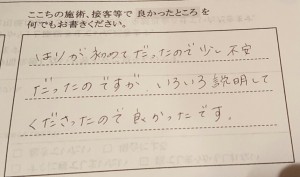 ここの施術、接客等で 良かったところ を
何でもお書きください。
はりが初めてだったので少し不安
だったのですが いろいろ説明して
くださったので良かったです。